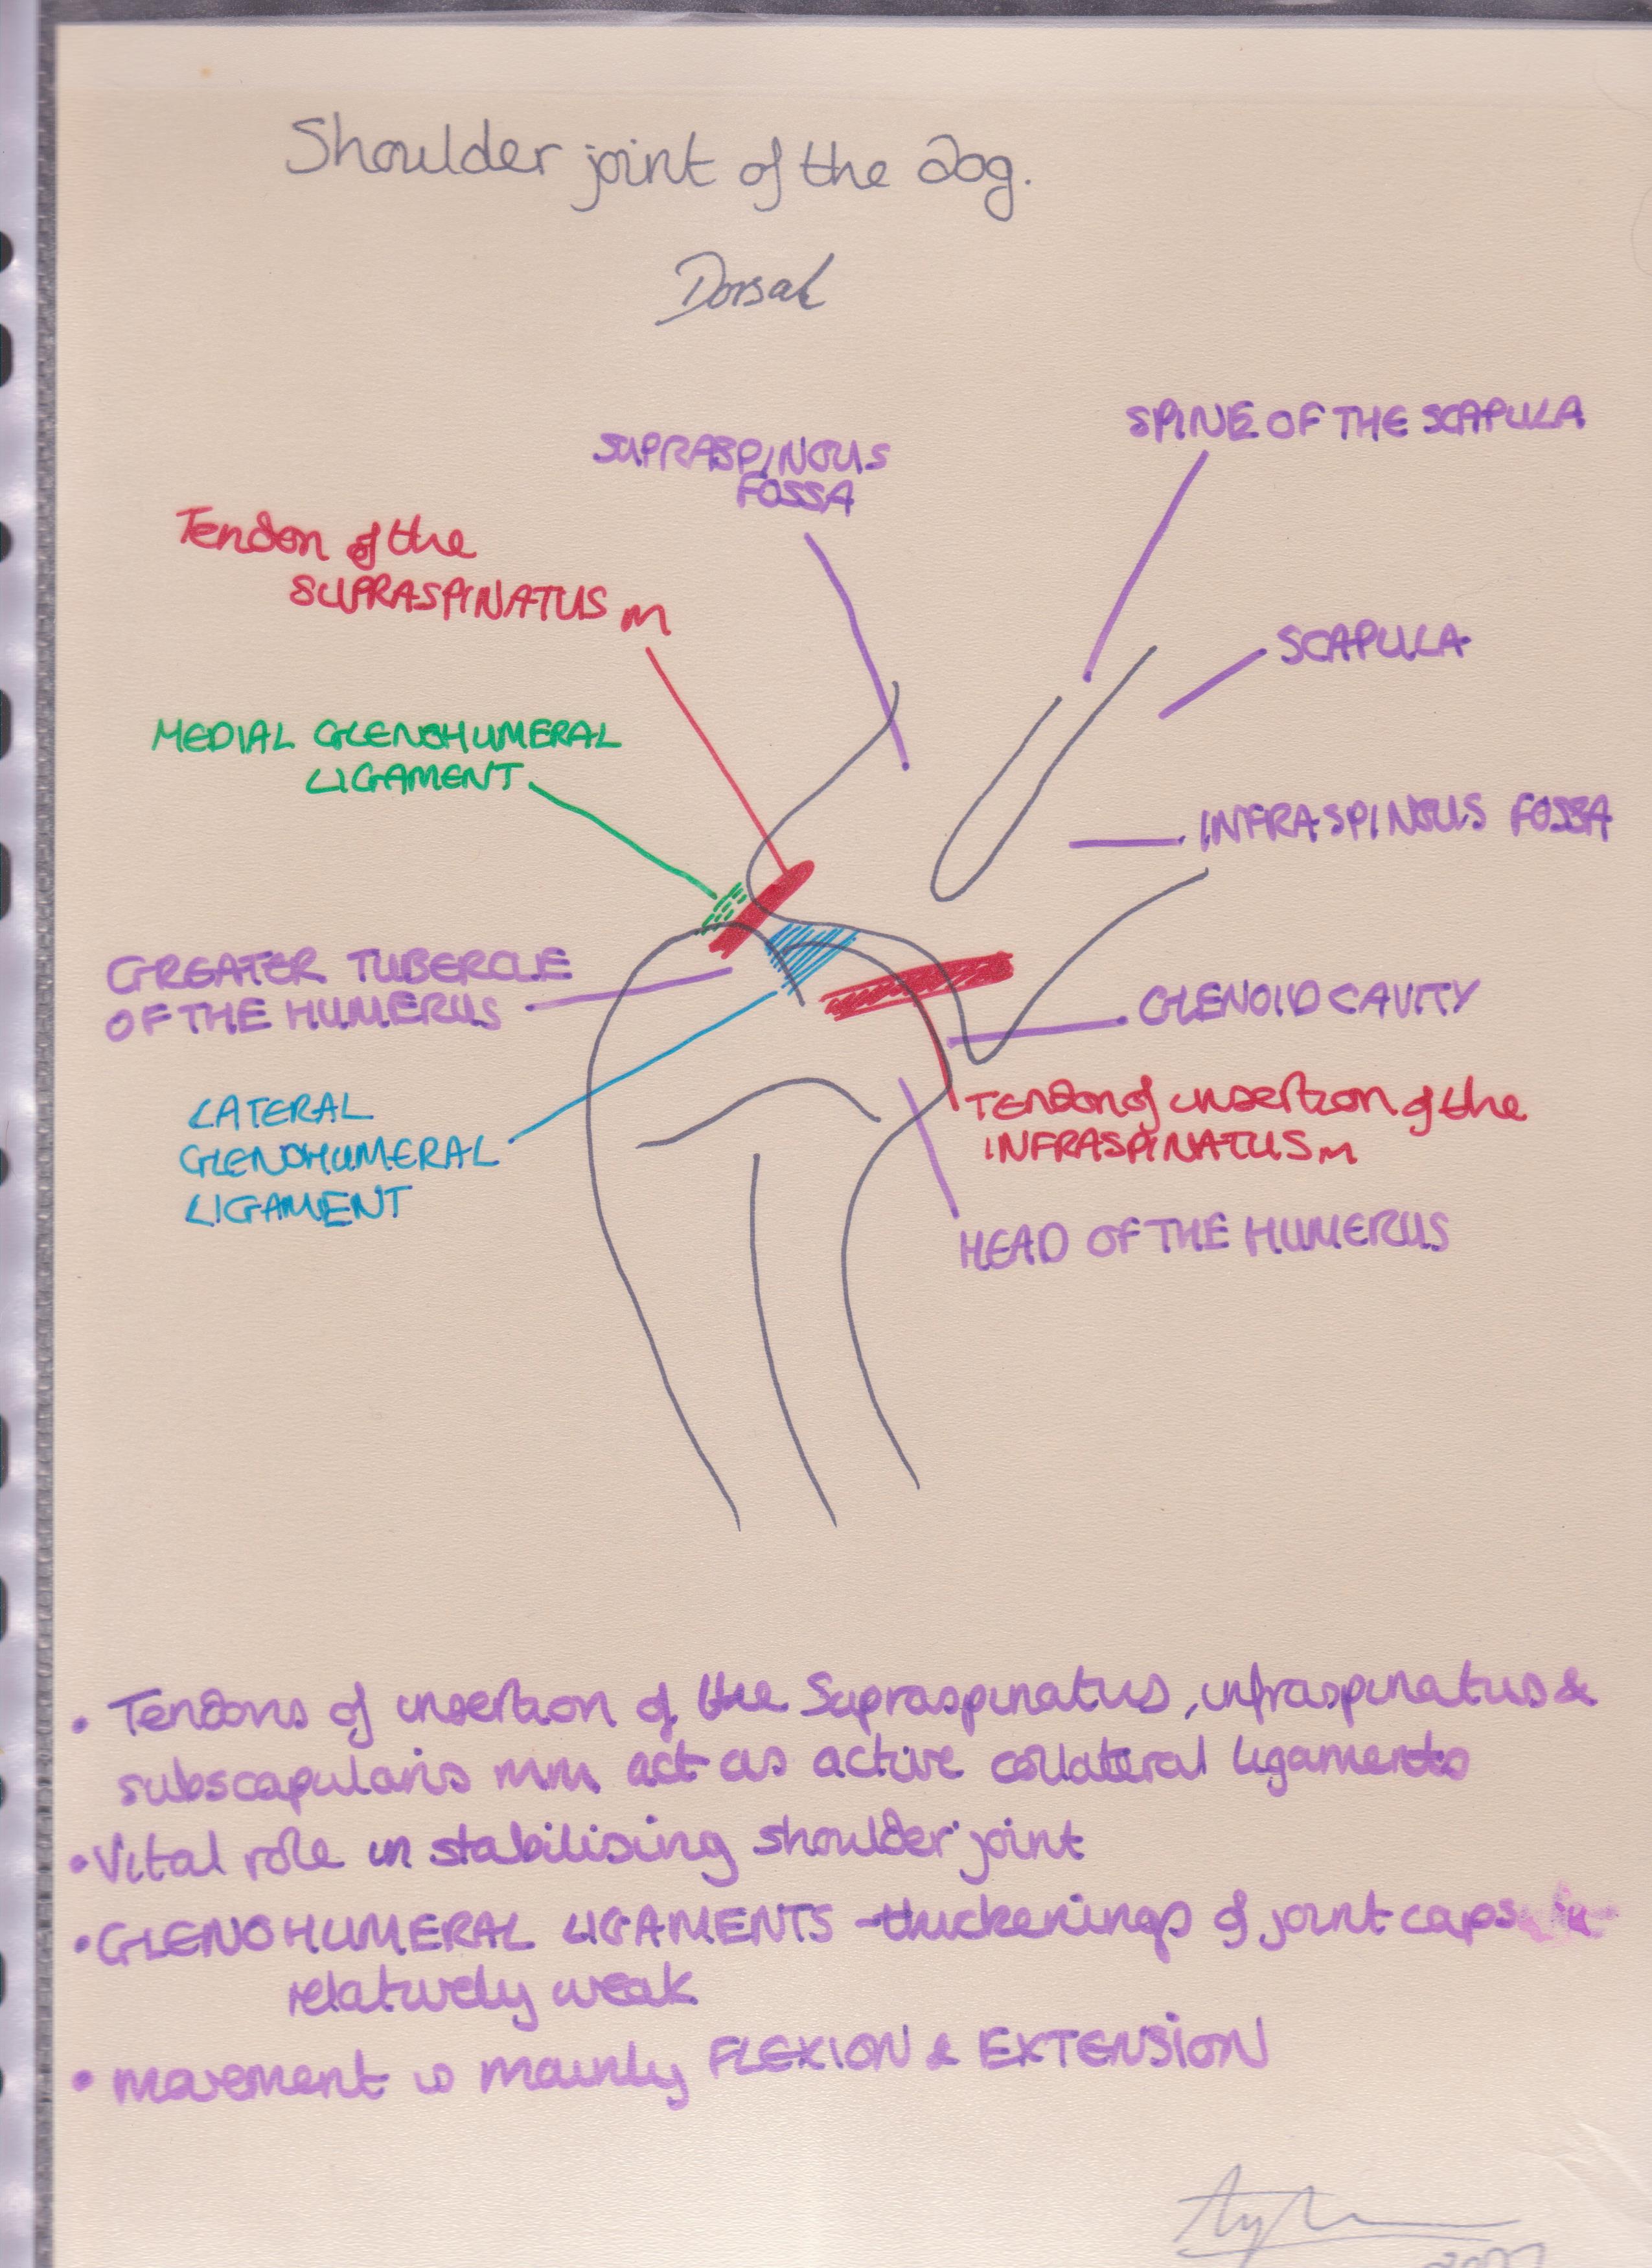 Shoulder joint of the dog.
Dorsal
SPINE OF THE SCAPULA
SUPRASPINOUS
FOSSA
Tendon of the
SUPRASPINATUS m
SCAPULA
MEDIAL GLENOHUMERAL
LIGAMENT
INFRASPINOUS FOSSA
GREATER TUBERCLE
OF THE HUMERUS
GLENOID CAVITY
LATERAL
GLENOHUMERAL
LIGAMENT
TENDON of insertion of the
INFRASPINATUS m
HEAD OF THE HUMERUS
• Tendons of insertion of the Supraspinatus, infraspinatus &
subscapularis mm act as active collateral ligaments
• Vital role in stabilising shoulder joint
• GLENOHUMERAL LIGAMENTS - thickenings of joint
relatively weak
• movement is mainly FLEXION & EXTENSION